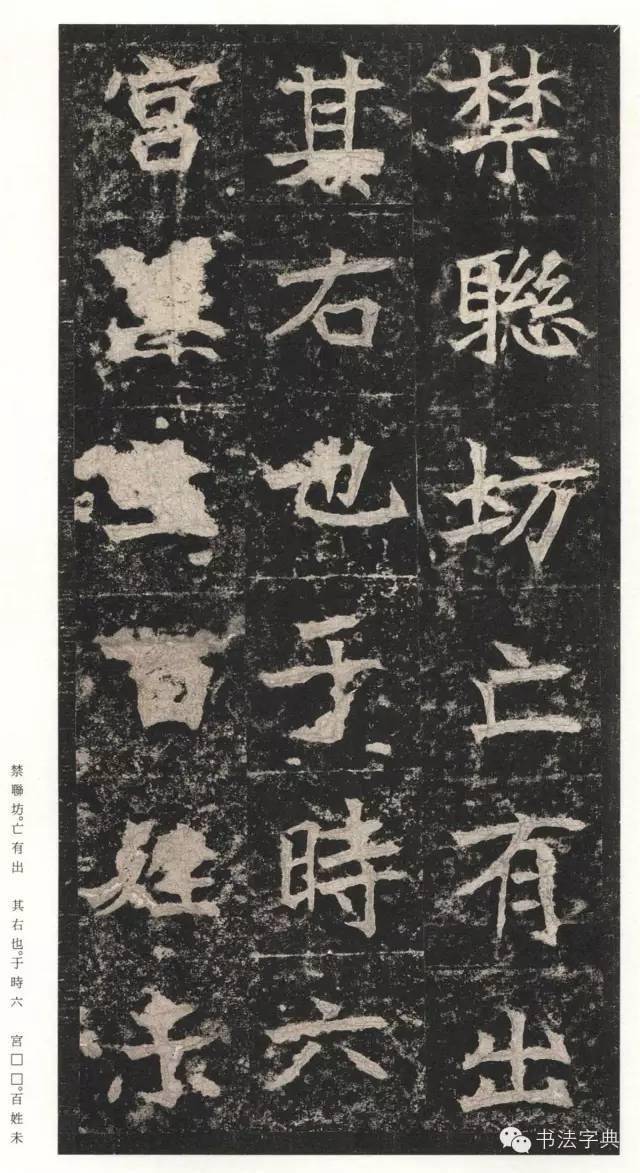 禁聯坊亡有出
其右也于時六
宮
百姓未
禁聯坊。亡有出　其右也。于時六　宮□□。百姓未
书法字典